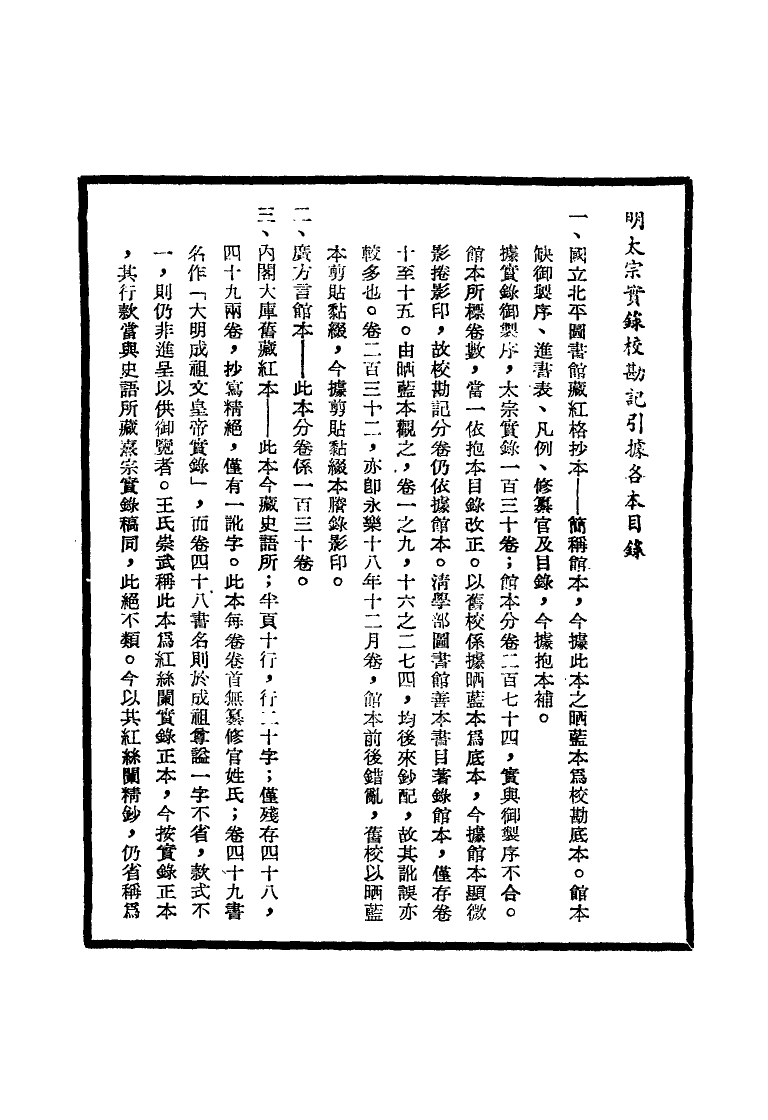 明太宗實錄校勘記引據各本目錄
一、國立北平圖書館藏紅格抄本——簡稱館本,今據此本之晒藍本爲校勘底本。館本
缺御製序、進書表、凡例、修纂官及目錄,今據抱本補。
據實錄御製序,太宗實錄一百三十卷;館本分卷二百七十四,實與御製序不合。
館本所標卷數,當一依抱本目錄改正。以舊校係據晒藍本爲底本,今據館本顯微
影捲影印,故校勘記分卷仍依據館本。清學部圖書館善本書目著錄館本,僅存卷
十至十五。由晒藍本觀之,卷一之九,十六之二七四,均後來鈔配,故其訛誤亦
較多也。卷二百三十二,亦卽永樂十八年十二月卷,館本前後錯亂,舊校以晒藍
本剪貼黏綴,今據剪貼黏綴本謄錄影印。
二、廣方言館本——此本分卷係一百三十卷。
三、內閣大庫舊藏紅本——此本今藏史語所;半頁十行,行二十字;僅殘存四十八,
四十九兩卷,抄寫精絕,僅有一訛字。此本每卷卷首無纂修官姓氏;卷四十九書
名作「大明成祖文皇帝實錄」,而卷四十八書名則於成祖尊謚一字不省,款式不
一,則仍非進呈以供御覽者。王氏崇武稱此本爲紅絲闌實錄正本,今按實錄正本
,其行款當與史語所藏熹宗實錄稿同,此絕不類。今以其紅絲闌精鈔,仍省稱爲